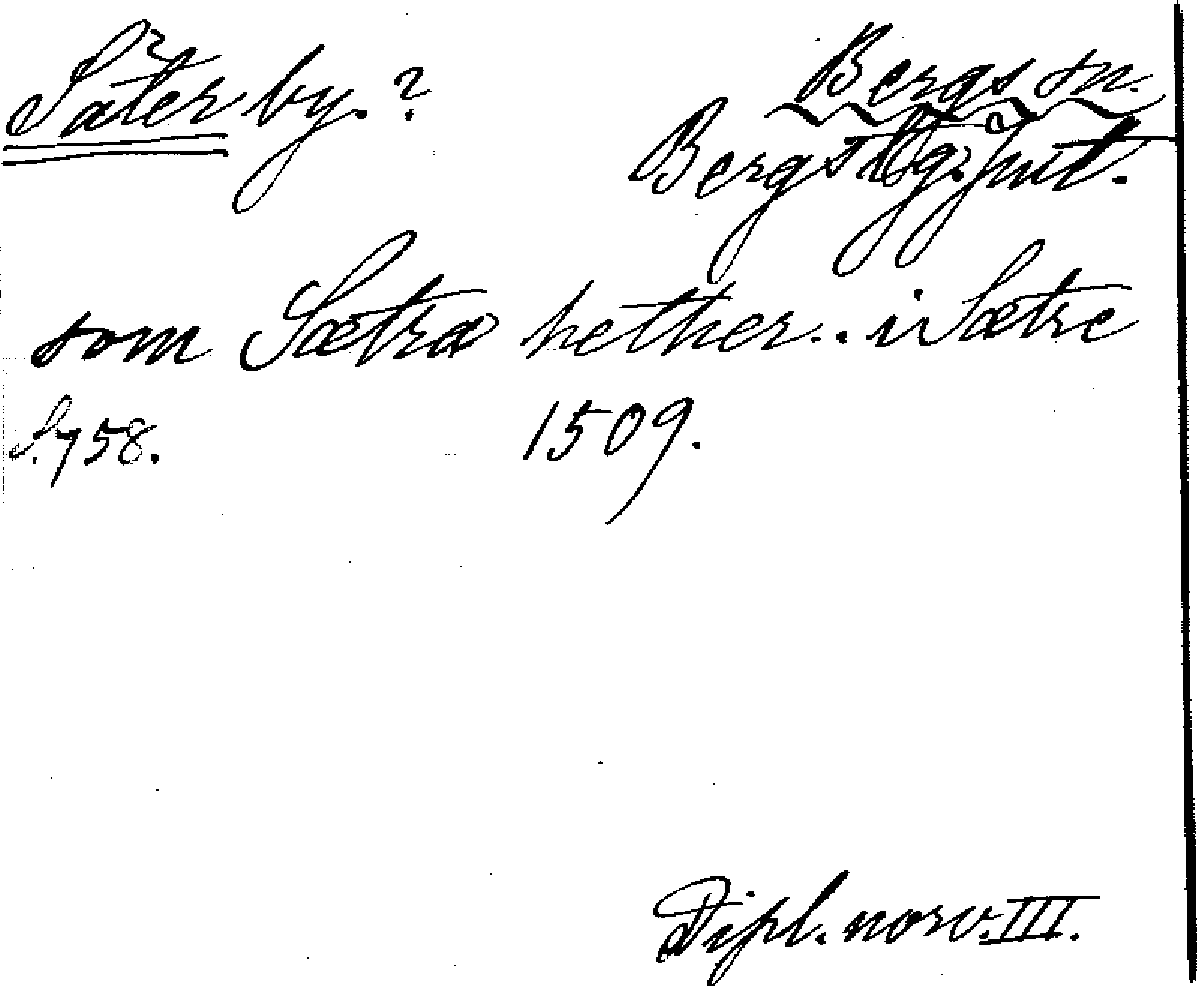 Säter by.? Bergs sn.
Bergs tlg. Jmtl.
som Sætra hether.. i Sætre
S. 758. 1509.
Dipl. norv. III.